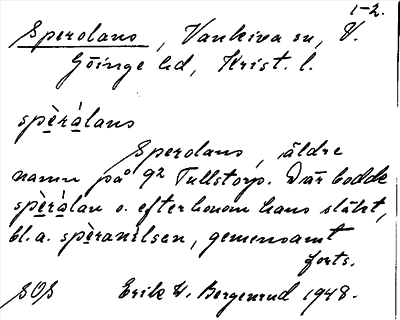 1-2.
Sperolans, Vankiva sn, V.
Göinge hd, Krist. l.
spèrálans
Sperolans, äldre
namn på 92 Tullstorp. Där bodde
spèrálan o. efter honom hans släkt,
bl.a. spèranilsen, gemensamt
forts.
SOS Erik W. Bergenrud 1948.